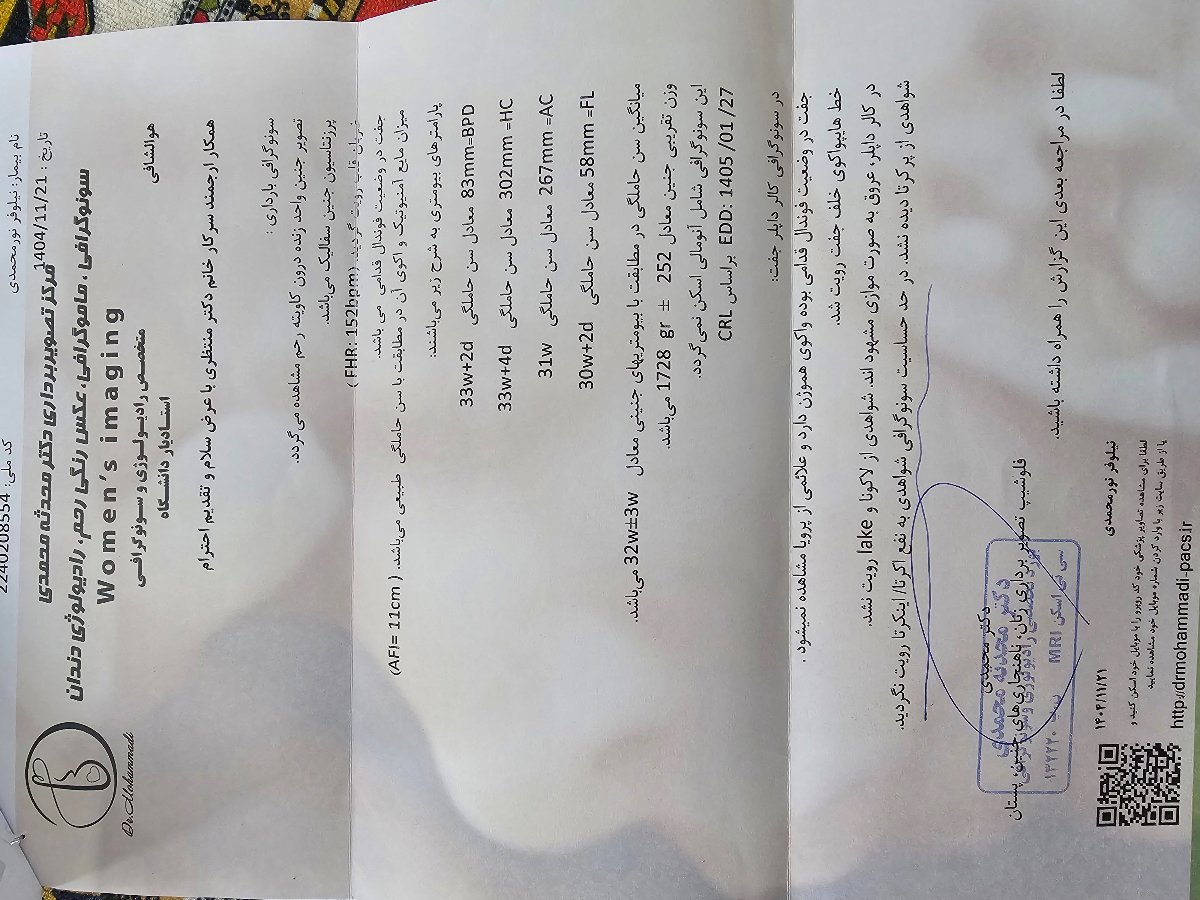 نام بیمار: نیلوفر نورمحمدی
کد ملی: 2240208554
تاریخ: 1404/11/21
مرکز تصویربرداری دکتر محدثه محمدی
سونوگرافی، ماموگرافی، عکس رنگی رحم، رادیولوژی دندان
Women's imaging
متخصص رادیولوژی و سونوگرافی
استادیار دانشگاه
Dr.Mohammadi
هوالشافی
همکار ارجمند سرکار خانم دکتر منتظری با عرض سلام و تقدیم احترام
سونوگرافی بارداری :
تصویر جنین واحد زنده درون کاویته رحم مشاهده می گردد.
پرزنتاسیون جنین سفالیک می‌باشد.
( FHR: 152bpm)
جفت در وضعیت فوندال قدامی می باشد.
میزان مایع آمنیوتیک و اکوی آن در مطابقت با سن حاملگی طبیعی می‌باشد. ( AFI= 11cm)
پارامترهای بیومتری به شرح زیر می‌باشند:
83mm=BPD معادل سن حاملگی 33w+2d
302mm =HC معادل سن حاملگی 33w+4d
267mm =AC معادل سن حاملگی 31w
58mm =FL معادل سن حاملگی 30w+2d
میانگین سن حاملگی در مطابقت با بیومتریهای جنینی معادل 32w±3w می‌باشد.
وزن تقریبی جنین معادل 1728 gr ± 252 می‌باشد.
این سونوگرافی شامل آنومالی اسکن نمی‌گردد.
EDD: 1405 /01 /27 براساس CRL
در سونوگرافی کالر داپلر جفت:
جفت در وضعیت فوندال قدامی بوده واکوی هموژن دارد و علائمی از پرویا مشاهده نمیشود .
خط هایپواکوی خلف جفت رویت شد.
در کالر داپلر، عروق به صورت موازی مشهود اند. شواهدی از لاکونا و lake رویت نشد.
شواهدی از پرکرتا دیده نشد. در حد حساسیت سونوگرافی شواهدی به نفع اکرتا/ اینکرتا رویت نگردید.
دکتر محمدی
فلوشیپ تصویر برداری زنان، ناهنجاری‌های جنین، پستان
دکتر محدثه محمدی
سی تی اسکن MRI
لطفا در مراجعه بعدی این گزارش را همراه داشته باشید.
نیلوفر نورمحمدی
۱۴۰۴/۱۱/۲۱
لطفا برای مشاهده تصاویر پزشکی خود کد روبرو را با موبایل خود اسکن کنید و
یا از طریق سایت زیر با وارد کردن شماره موبایل خود مشاهده نمایید
http://drmohammadi-pacs.ir